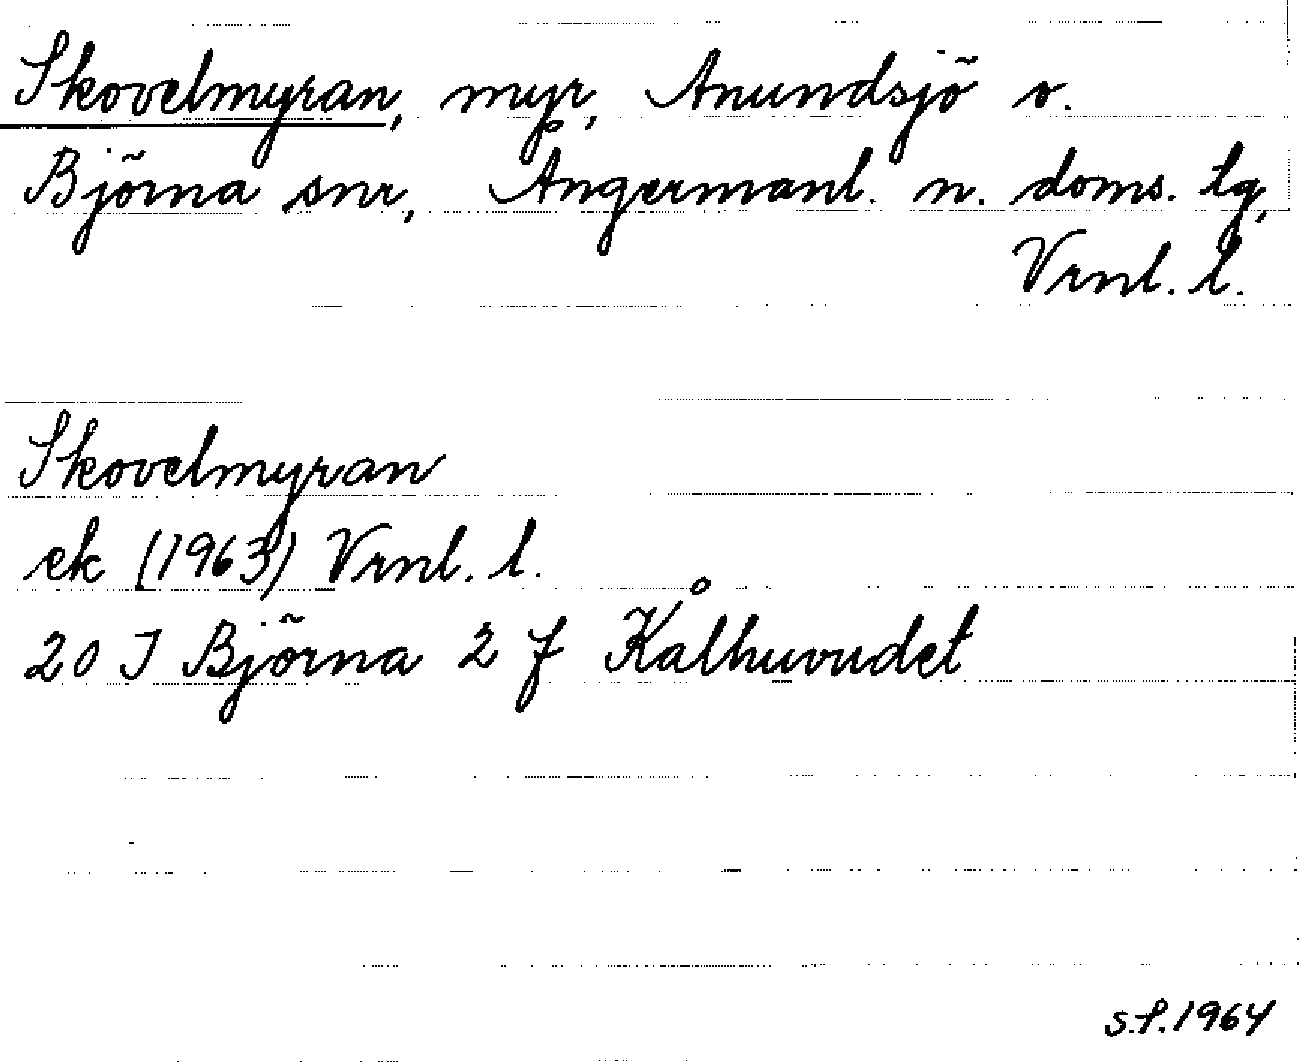 Skovelmyran, myr, Anundsjö o.
Björna snr, Ångermanl. n. doms. lg,
Vrnl. l.
Skovelmyran
ek (1963) Vrnl. l.
20 J Björna 2 f Kålhuvudet
S.P. 1964